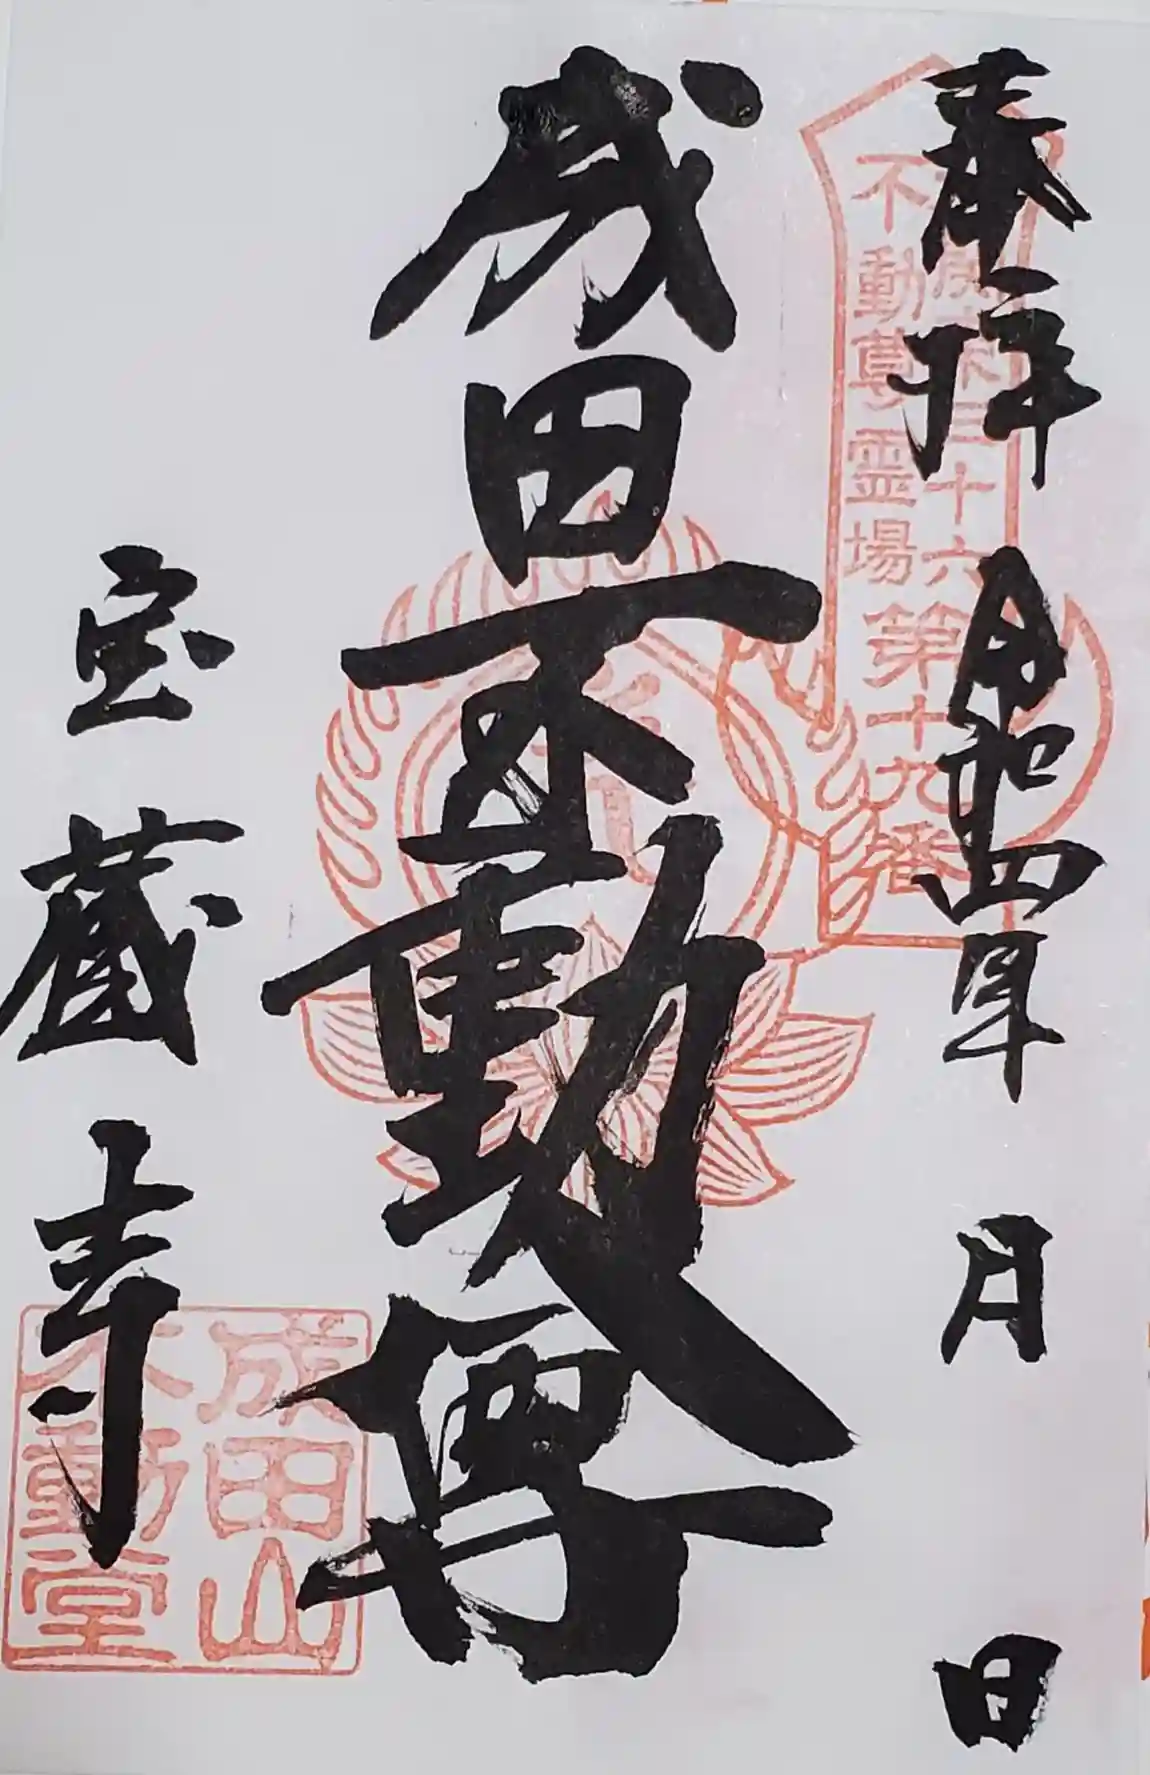 奉拝 令和四年 月 日
北関東三十六
不動尊霊場
第十九番
成田不動尊
宝蔵寺
成田山
不動堂